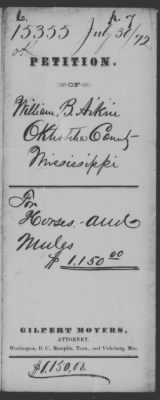 15,355 July 31/72
PETITION.
OF
William B. Aikin
Oktibbeha County
Mississippi
For
Horses and
Mules
$ 1,150 00
GILPERT MOYERS,
ATTORNEY.
Washington, D. C., Memphis, Tenn., and Vicksburg, Miss.
$1,150.00.